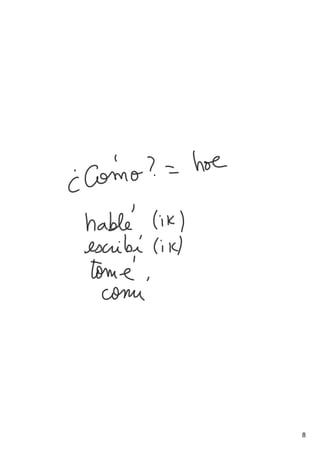 ¿Cómo? = hoe
hablé (ik)
escribí (ik)
tomé,
comí
8